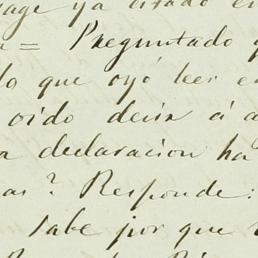 ya citado
= Preguntado
lo que oyó leer
oido decir á
a declaracion ha
as? Responde:
sabe por que